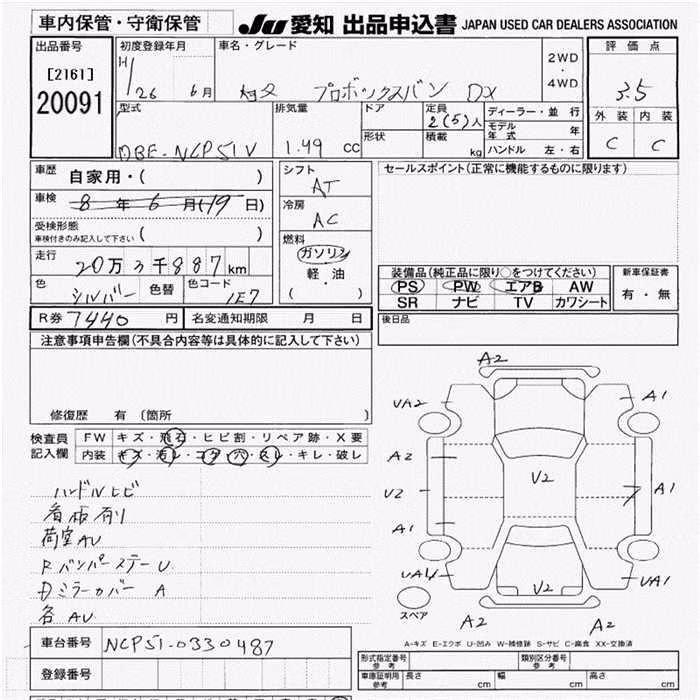 車内保管・守衛保管
JU 愛知 出品申込書 JAPAN USED CAR DEALERS ASSOCIATION
出品番号
[2161]
20091
初度登録年月
H/26 6月
車名・グレード
プロボックスバン DX
2WD
・
4WD
評価点
3.5
外装 内装
C C
型式
DBE-NCP51V
排気量
1.49 cc
ドア
形状
定員
2(5)人
積載
kg
ディーラー・並行
モデル年式 年
ハンドル 左・右
車歴 自家用・( )
車検 8年6月(19日)
受検形態
車検付きのみ記入して下さい ( )
走行
20万3千887km
色 シルバー 色替 色コード 1E7
シフト
AT
冷房
AC
燃料
ガソリン
軽・油
( )
セールスポイント(正常に機能するものに限ります)
装備品(純正品に限り○をつけてください)
PS PW エアB AW
SR ナビ TV カワシート
新車保証書
有・無
R券 7440 円 名変通知期限 月 日
後日品
注意事項申告欄(不具合内容等は具体的に記入して下さい)
修復歴 有 (箇所 )
検査員
記入欄
FW キズ・飛石・ヒビ割・リペア跡・X要
内装 キズ・汚レ・コゲ・穴・スレ・キレ・破レ
ハンドルヒビ
看板有り
荷室AU
Rバンパーステー U
Dミラーカバー A
各AU
A2
UA2
A1
A2
U2
V2
A1
A1
UA1
V2
UA1
スペア
A2
A2
A-キズ E-エクボ U-凹み W-補修跡 S-サビ C-腐食 XX-交換済
車台番号 NCP51-0330487
登録番号
形式指定番号
参考
類別区分番号
参考
車庫証明用
参考
長さ cm 幅 cm 高さ cm